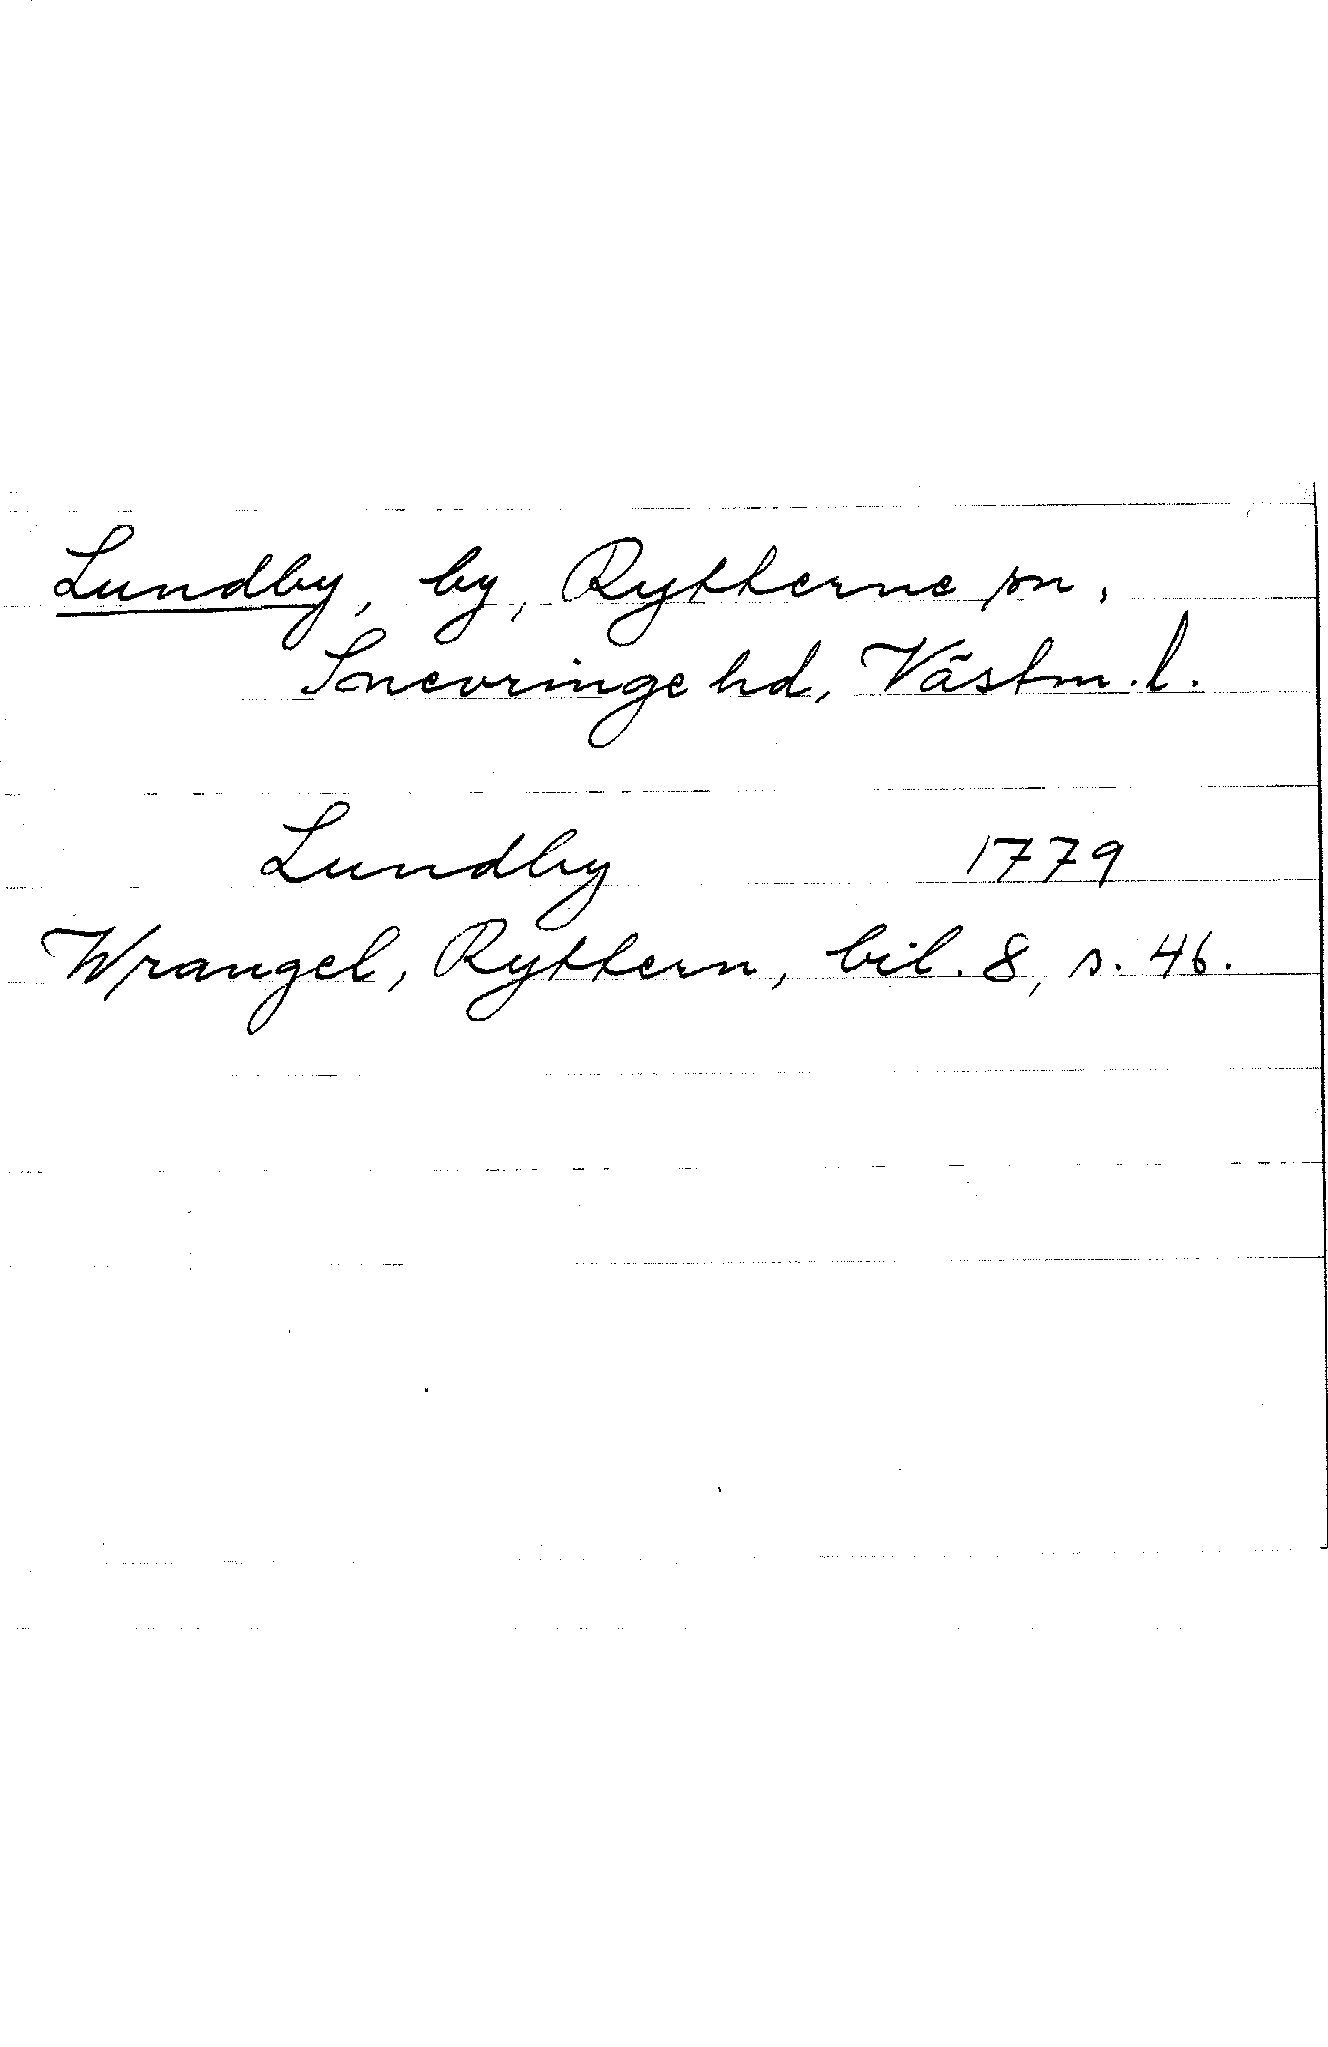 Lundby, by, Rytterne sn,
Snevringe hd, Västm. l.
Lundby 1779
Wrangel, Ryttern, bil. 8, s. 46.